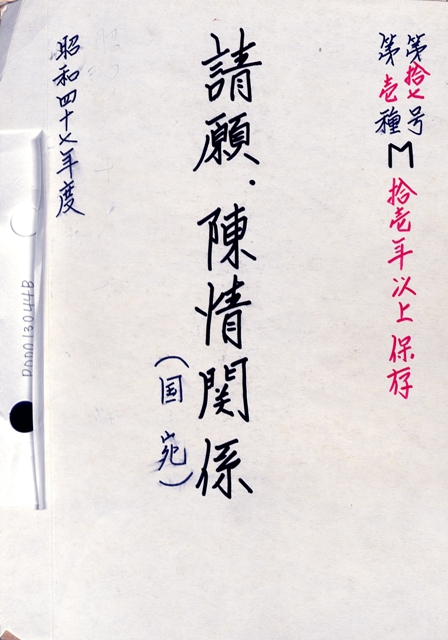 第拾七号
第壱種M 拾壱年以上保存
請願・陳情関係
(国宛)
昭和四十七年度